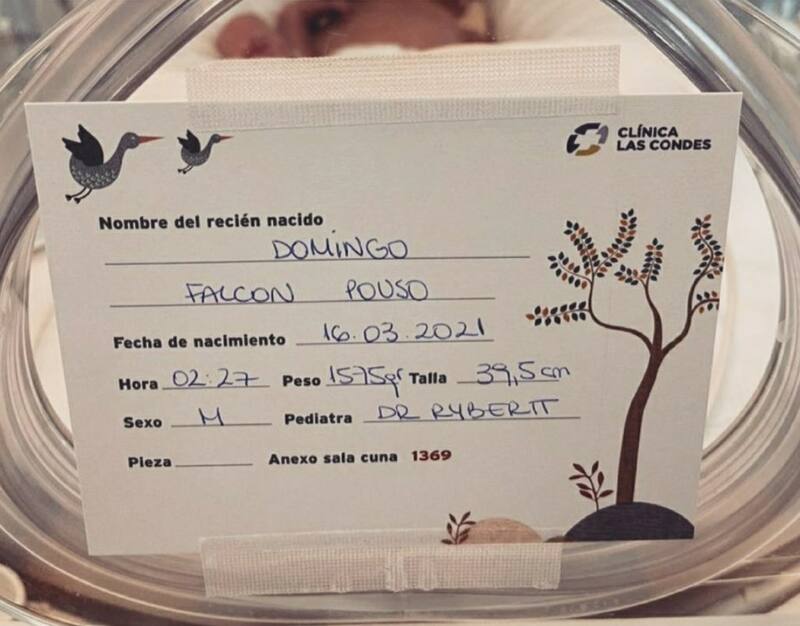 CLÍNICA
LAS CONDES
Nombre del recién nacido
DOMINGO
FALCON POUSO
Fecha de nacimiento 16.03.2021
Hora 02:27 Peso 1575gr Talla 39,5cm
Sexo M Pediatra DR RYBERTT
Pieza Anexo sala cuna 1369